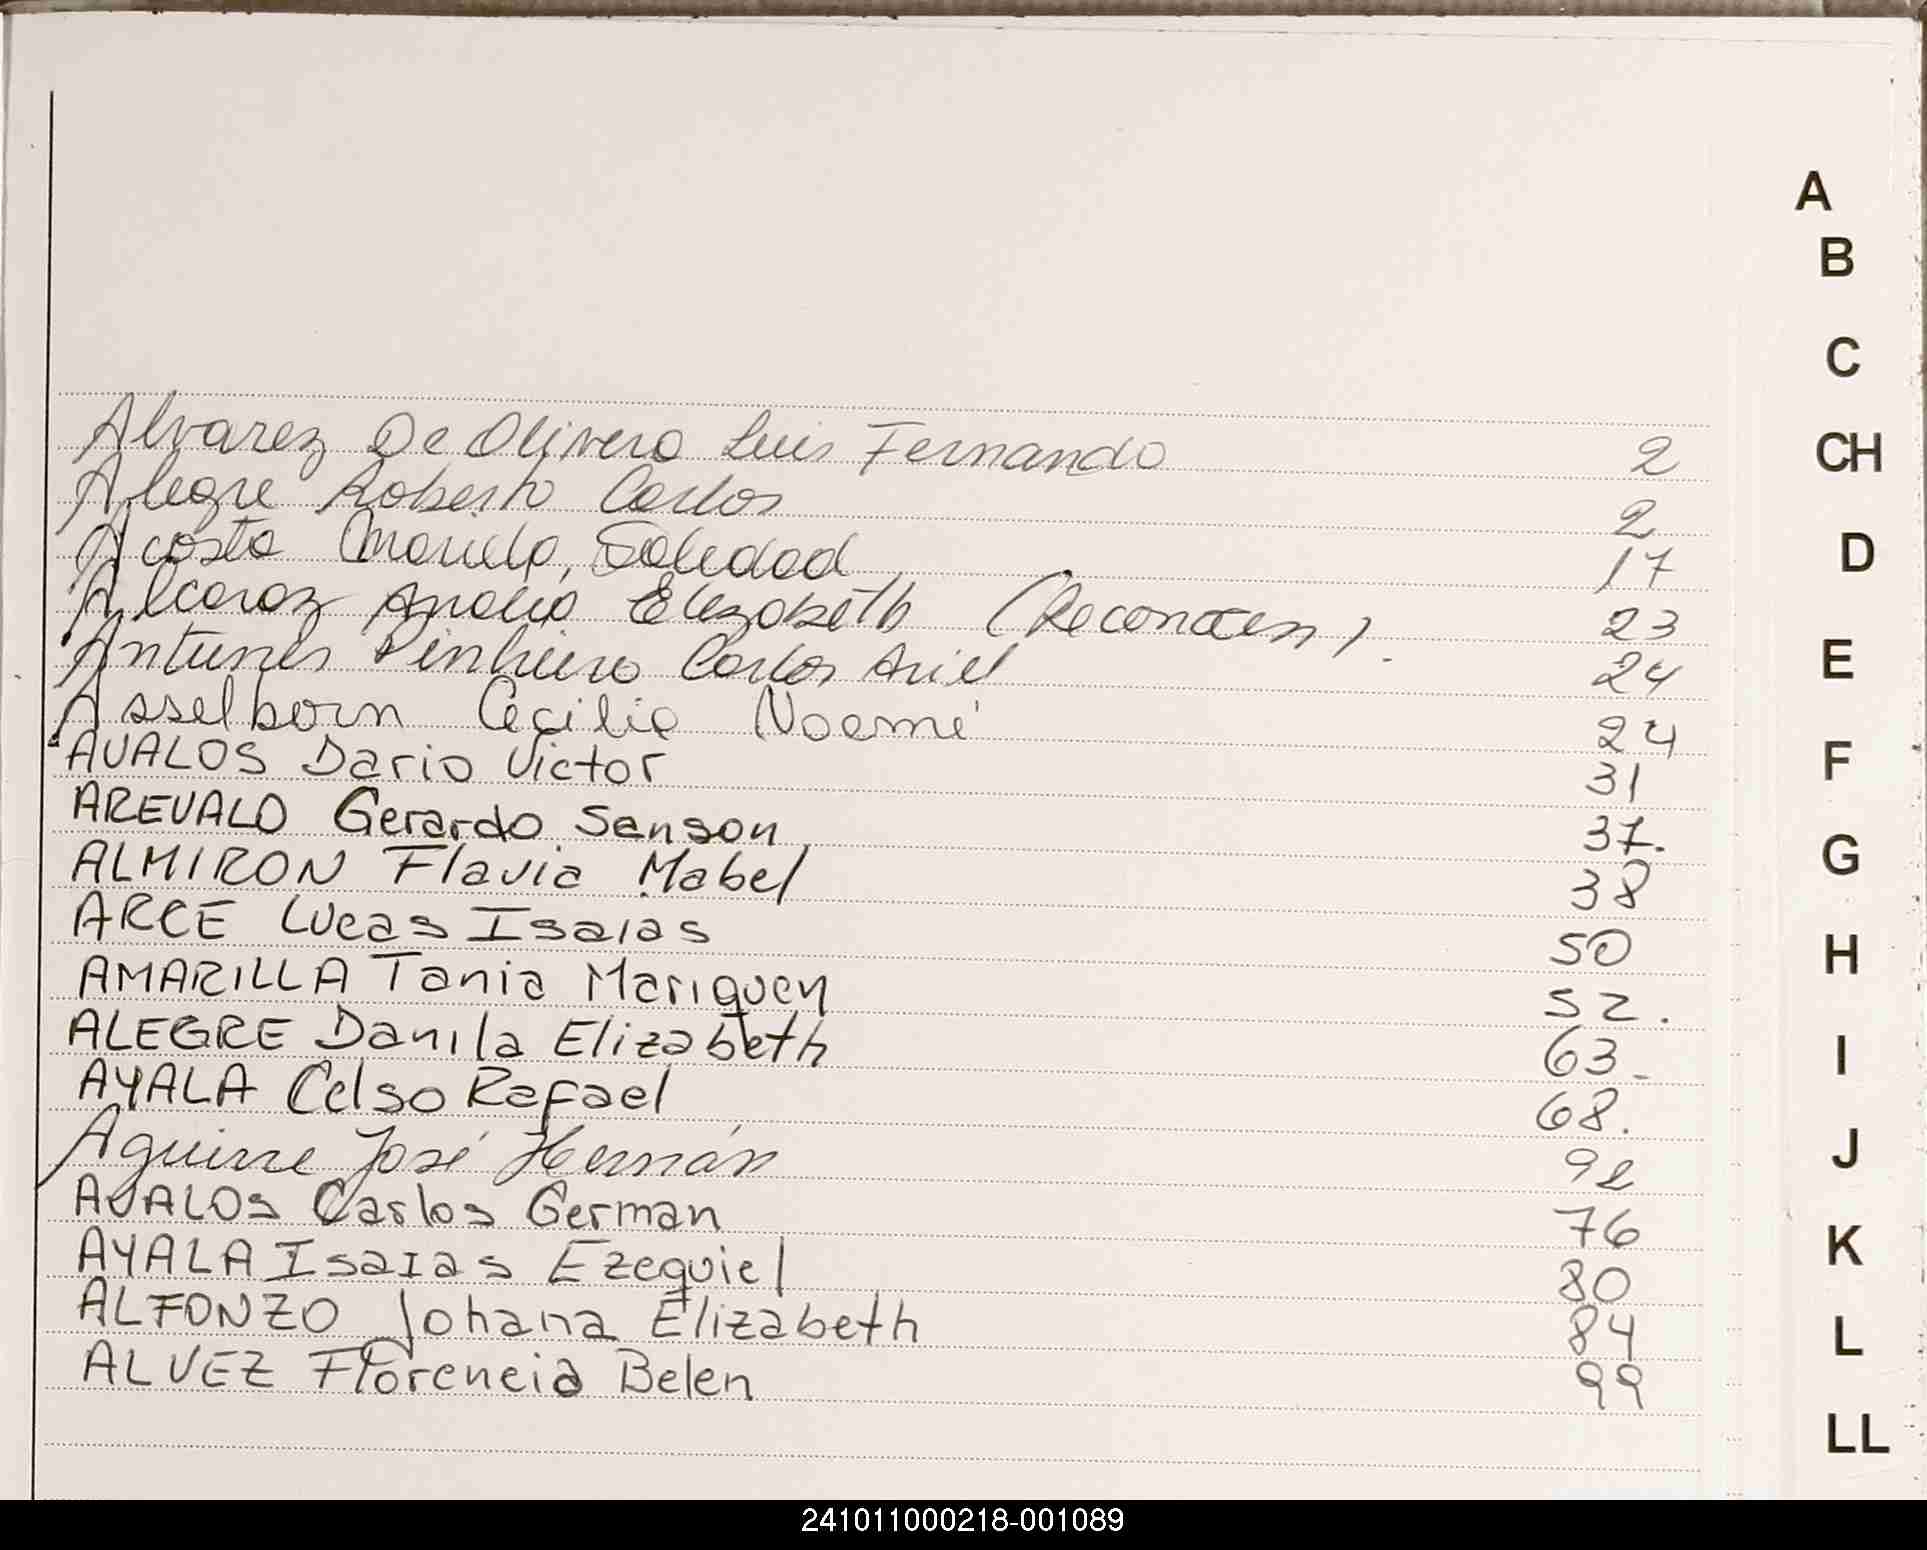 Alvarez De Olivera Luis Fernando 2
Alegre Roberto Carlos 2
Acosta Mariela, Soledad 17
Alcaraz Analia Elizabeth (Reconocim). 23
Antunes Pinheiro Carlos Ariel 24
Asselborn Cecilia Noemí 24
AVALOS Dario Victor 31
AREVALO Gerardo Sanson 37.
ALMIRON Flavia Mabel 38
ARCE Lucas Isaias 50
AMARILLA Tania Mariquen 52.
ALEGRE Danila Elizabeth 63-
AYALA Celso Rafael 68.
Aguirre José Hernán 92
AVALOS Carlos German 76
AYALA Isaias Ezequiel 80
ALFONZO Johana Elizabeth 84
ALVEZ Florencia Belen 99
A
B
C
CH
D
E
F
G
H
I
J
K
L
LL
241011000218-001089